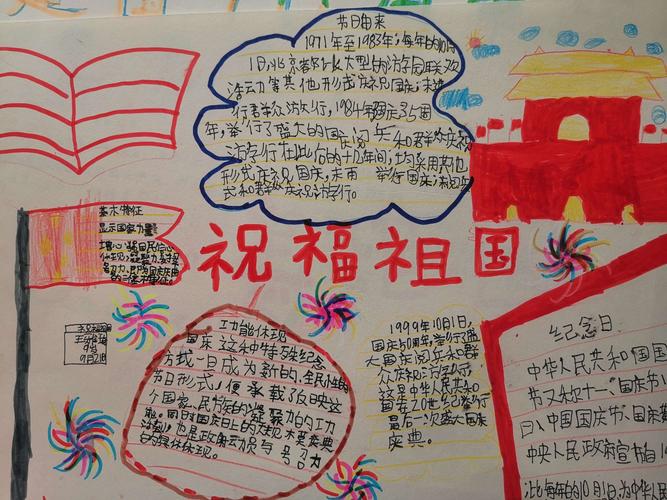 节日由来
1971年至1983年,每年的10月
1日,北京都以大型的游园联欢
活动等其他形式庆祝国庆,未进
行群众游行,1984年国庆35周
年,举行了盛大的国庆阅兵和群众庆祝
游行在此后的十几年间,均采用其他
形式庆祝国庆,未再 举行国庆阅兵
式和群众庆祝游行。
基本特征
显示国家力量
增心,凝聚
祝福祖国
功能体现
国庆这种特殊纪念
方式一旦成为新的、全民性的
节日形式,便承载了反映这
个国家、民族的凝聚力的功
能。同时国庆日上的大规模庆典
活动,也是政府动员与号召力
的具体体现。
1999年10月1日,
国庆50周年,举行了盛
大国庆阅兵和群
众庆祝游行,
这是中华人民共和
国在20世纪举行
最后一次盛大国庆
庆典。
纪念日
中华人民共和国国
节又称十一、国庆节、
日、中国国庆节、国庆
中央人民政府宣布1
以每年的10月1日,为中华人民